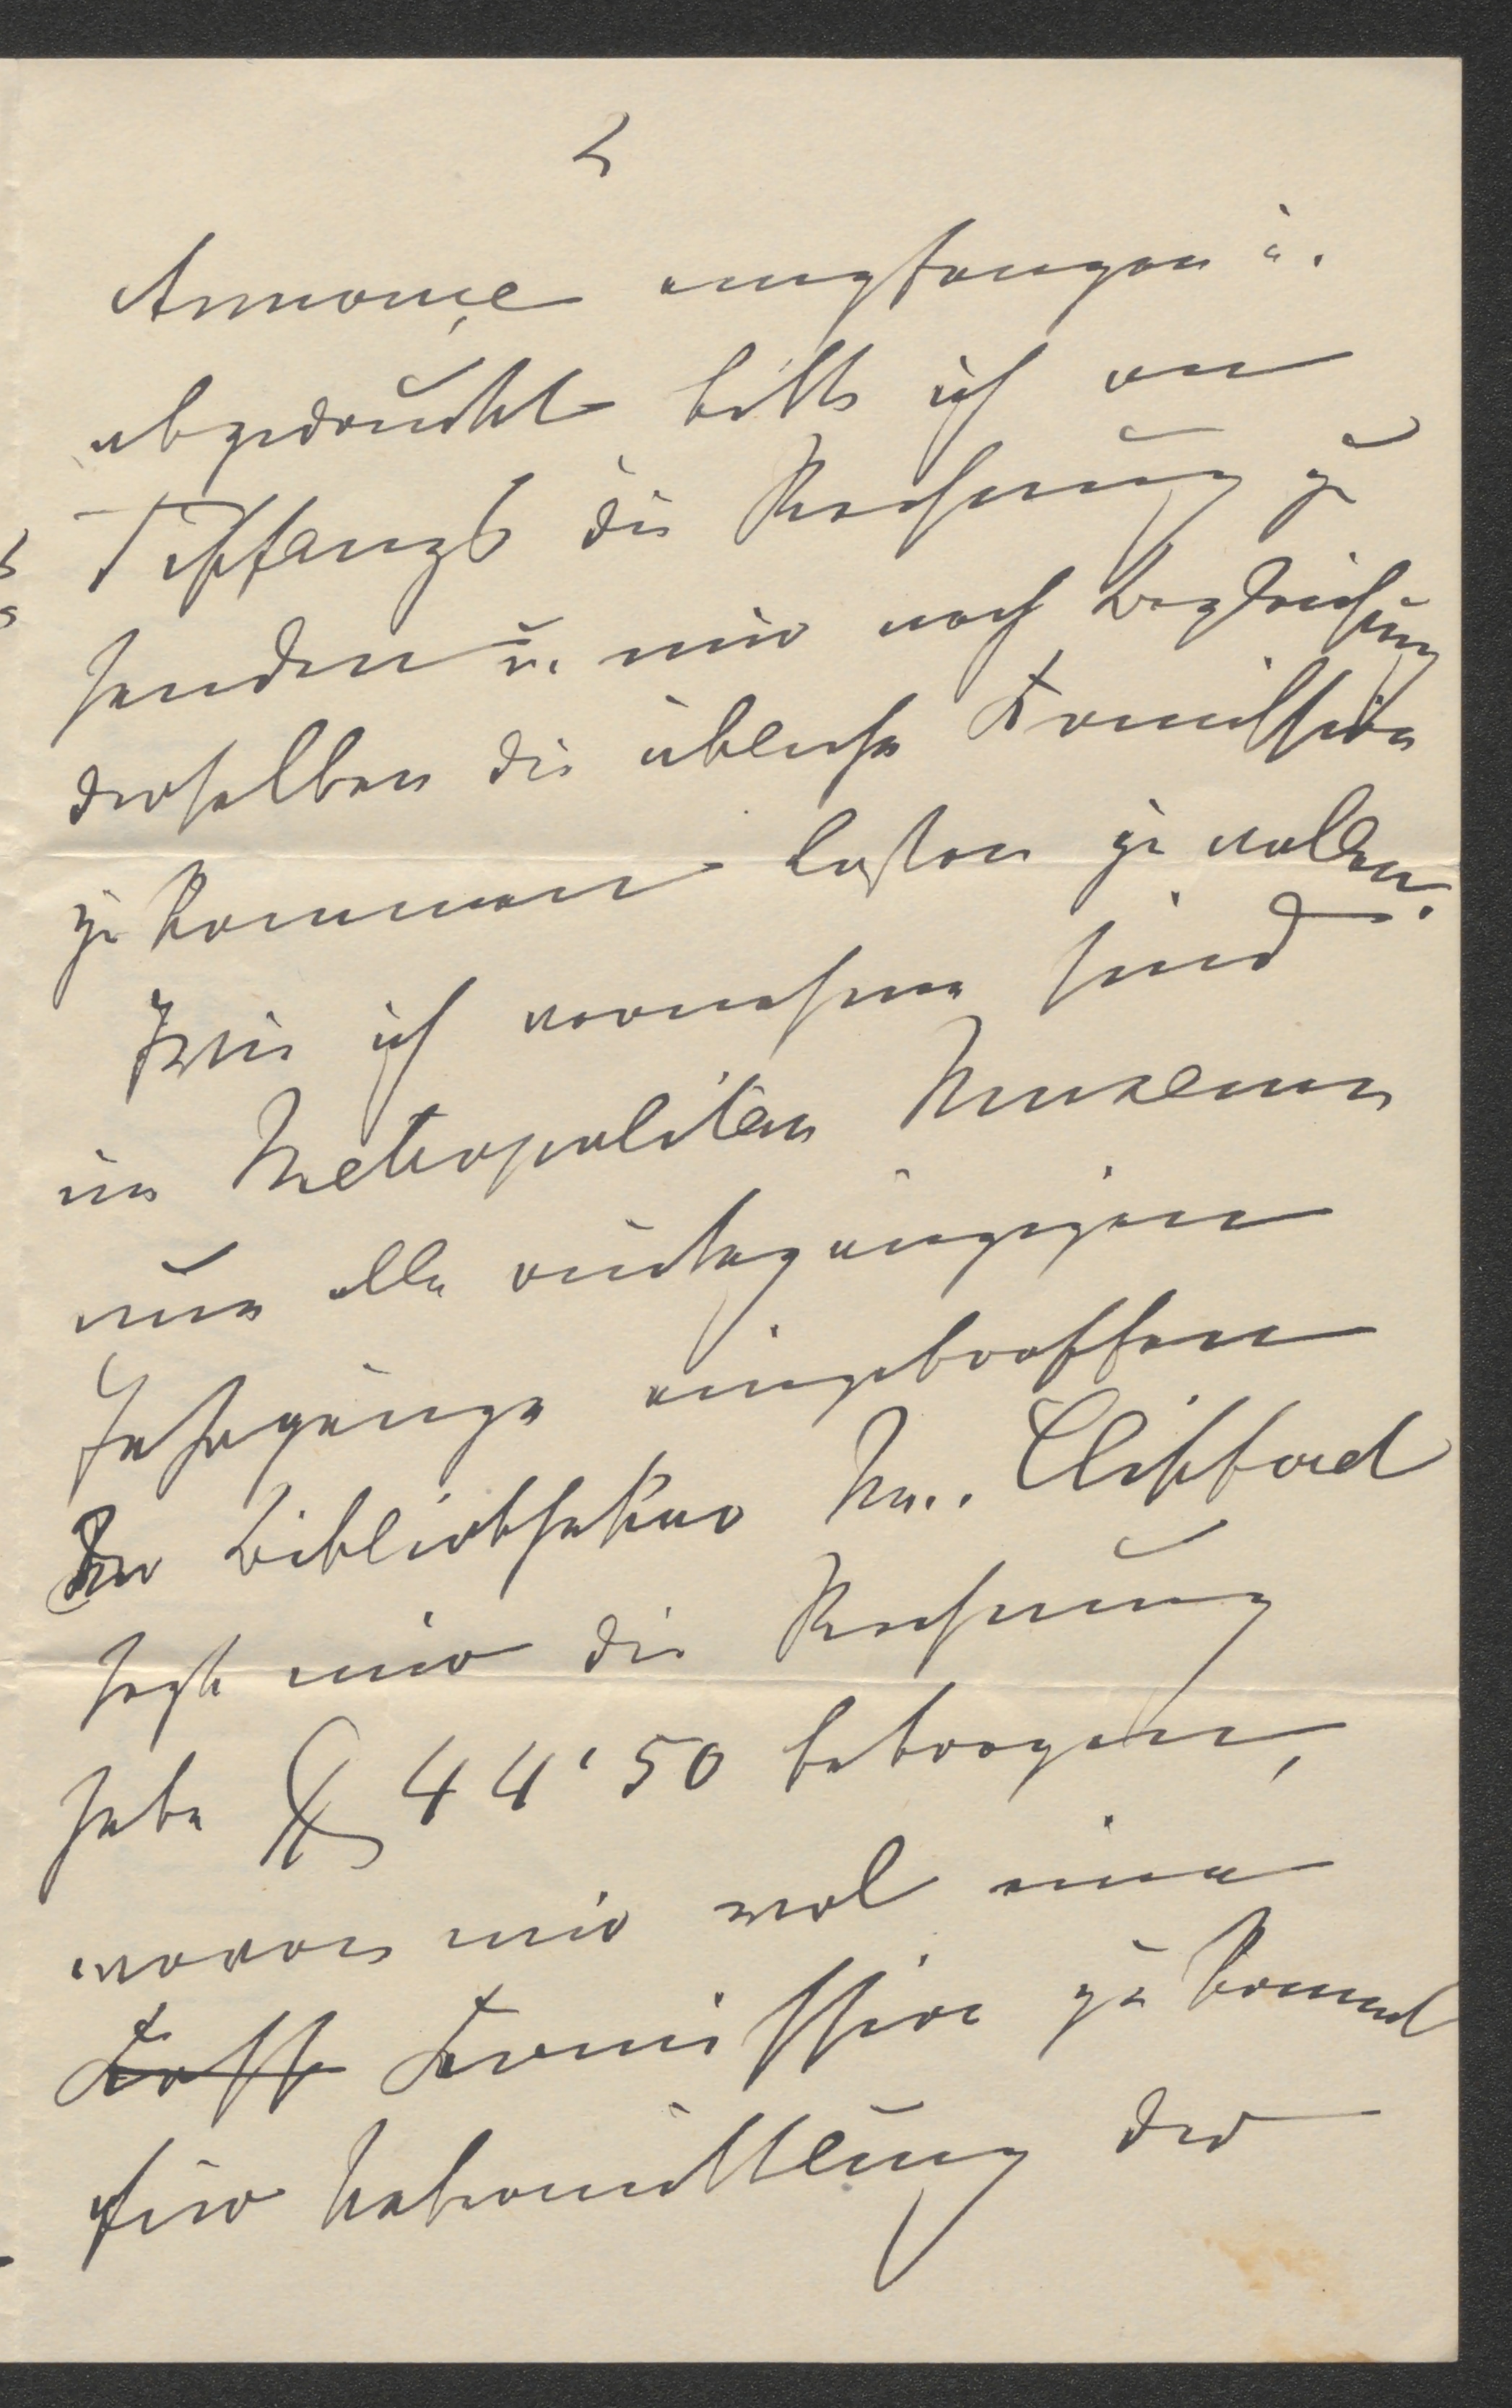 2
Annonçe empfangen u.
abgedruckt bitte ich an
Tiffanys die Rechnung zu
senden u. mir nach Begleichung
derselben die übliche Comission
zu kommen lassen zu wollen.
Wie ich vernehme sind
im Metropolitan Museum
nun alle rückgängigen
Jahrgänge eingetroffen
Der Bibliothekar Mr. Clifford
sagte mir die Rechnung
habe $ 44'50 betragen,
wovon mir wol eine
Comission zu kommt
für Übermittlung der